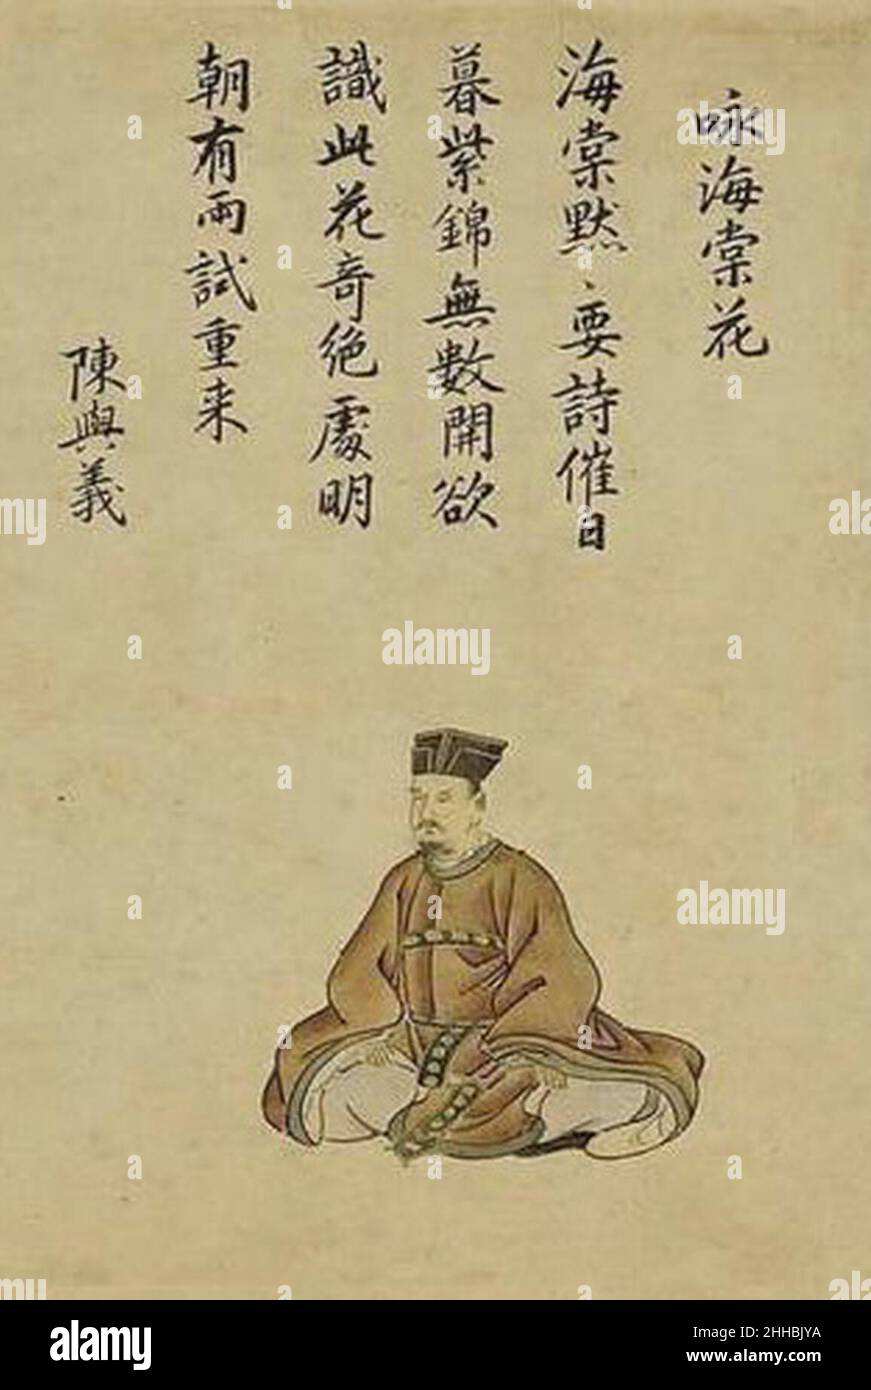 咏海棠花
海棠默〻要詩催日
暮紫錦無數開欲
識此花奇絶處明
朝有雨試重来
陳與義
alamy
a
alamy
Image ID: 2HHBJYA
www.alamy.com